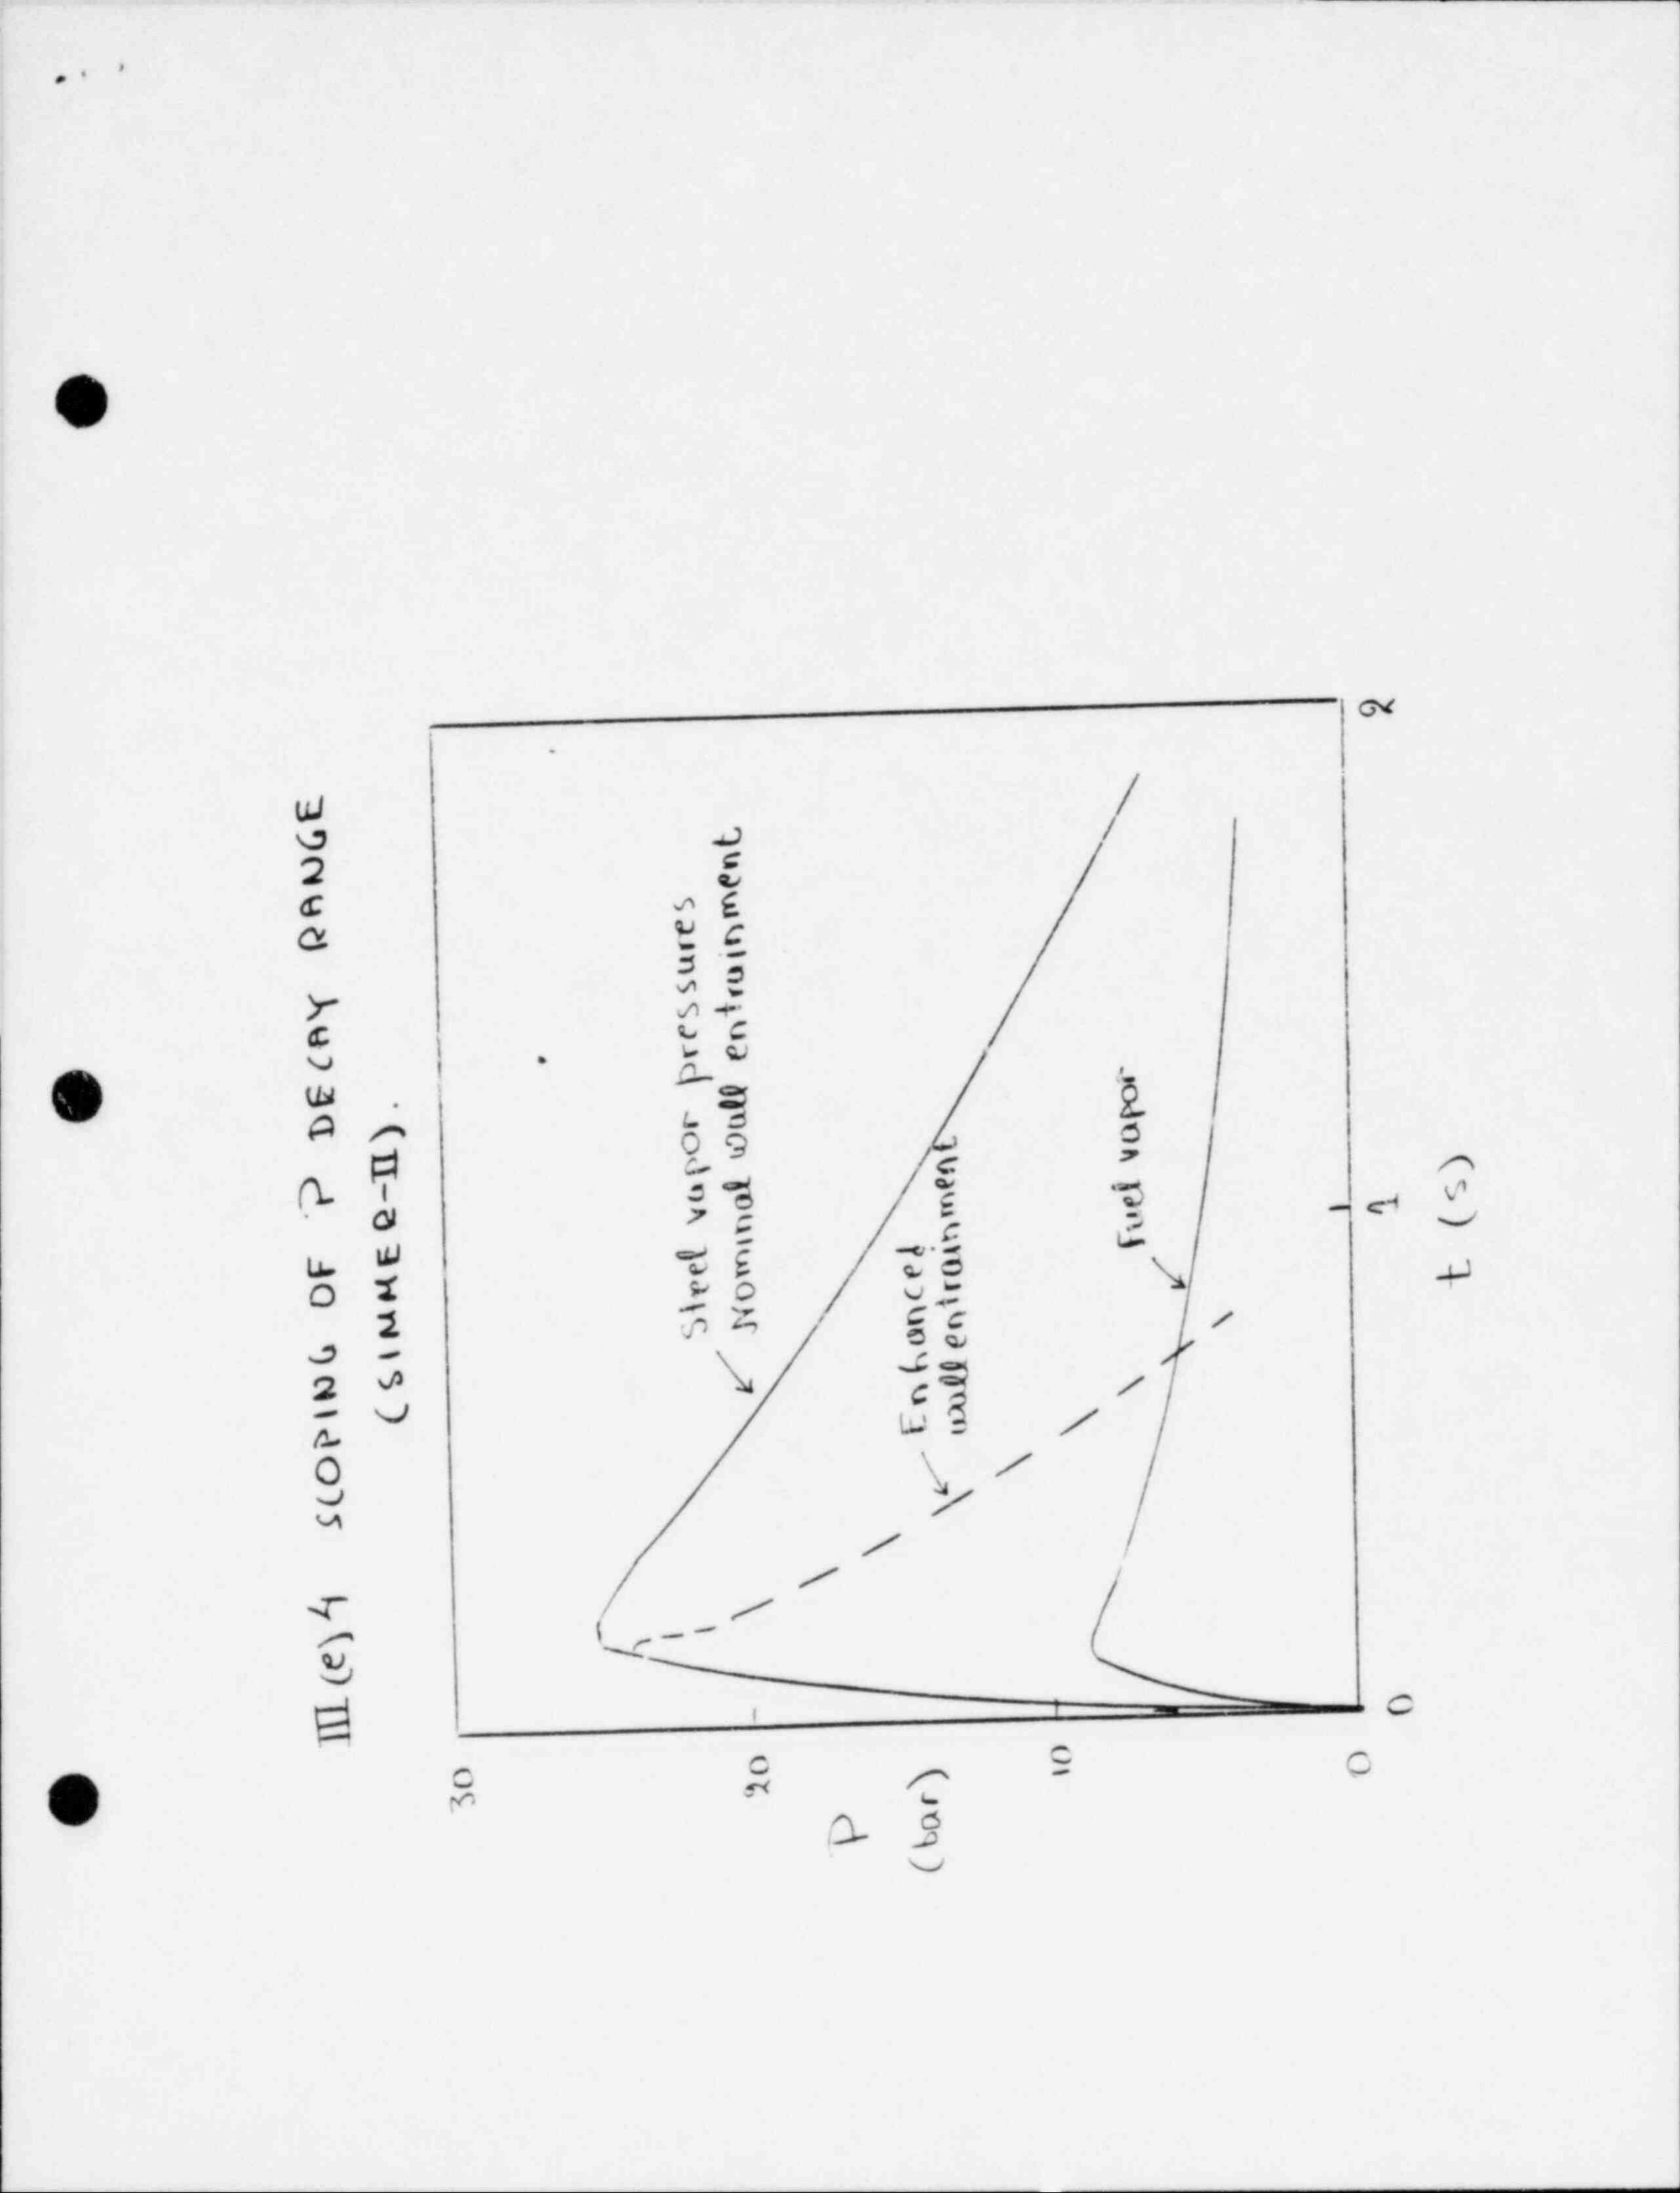 III(e)4 SCOPING OF P DECAY RANGE
(SIMMER-II).
30
20
10
0
P
(bar)
Steel vapor pressures
Nominal wall entrainment
Enhanced
wall entrainment
Fuel vapor
0
1
2
t (s)